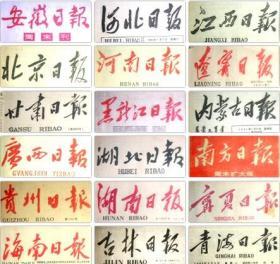 安徽日報
周末刊
河北日報
HEBEI RIBAO
江西日報
JIANGXI RIBAO
北京日报
河南日報
HENAN RIBAO
遼寧日報
LIAONING RIBAO
甘肃日報
GANSU RIBAO
黑龙江日报
内蒙古日報
廣西日報
GVANGJSIH YIZBAU
湖北日報
HUBEI RIBAO
南方日報
周末扩大版
貴州日報
GUIZHOU RIBAO
湖南日報
HUNAN RIBAO
寧夏日報
NINGXIA RIBAO
海南日報
HAINAN RIBAO
吉林日报
JILIN RIBAO
青海日報
QINGHAI RIBAO